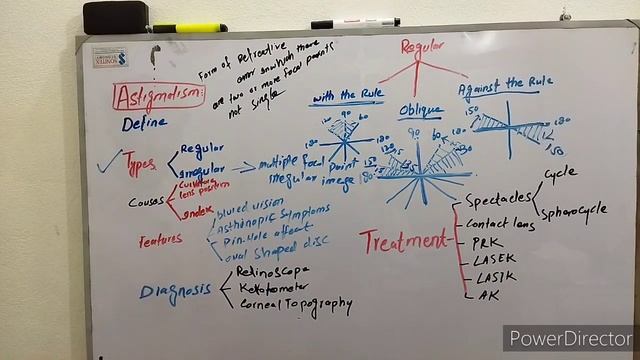 Form of Refractive
error in which there
are two or more focal points
not single
Astigmatism:
Define
Types
Regular
irregular
multiple focal point
irregular image
Causes
Curvature
lens position
index
Features
blured vision
Asthinopic symptoms
Pin-Hole affect
oval shaped disc
Diagnosis
Retinoscope
Keratometer
Corneal Topography
Regular
with the Rule
90
120
60
180
180
Oblique
90
60
30
180
Against the Rule
150
180
Treatment
Spectacles
cycle
spherocycle
Contact lens
PRK
LASEK
LASIK
AK
PowerDirector